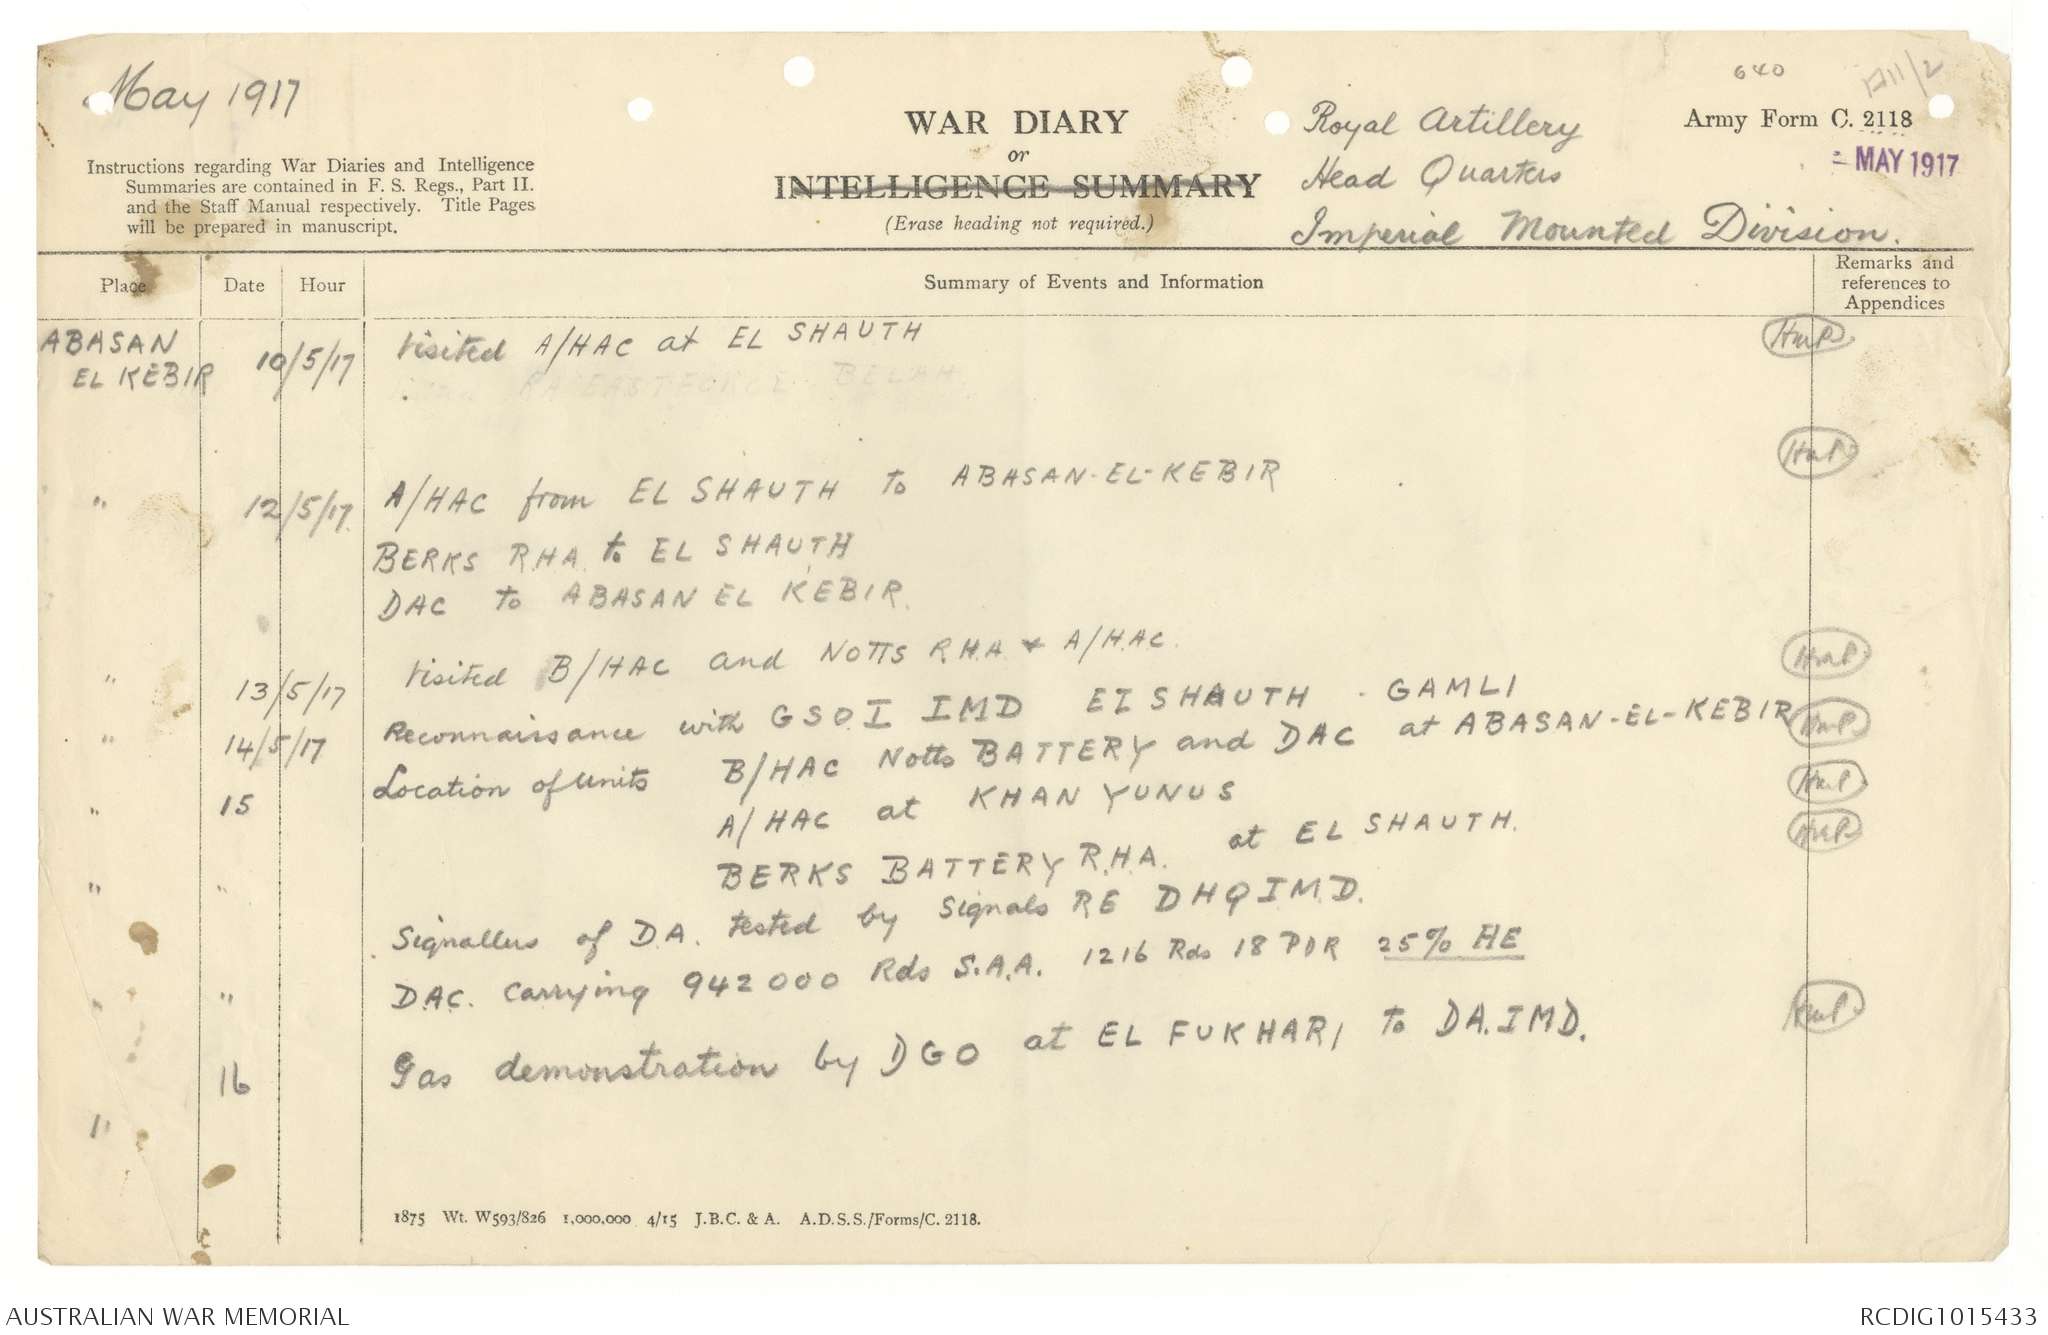 May 1917
640
1211/2
Army Form C. 2118
MAY 1917
WAR DIARY
or
INTELLIGENCE SUMMARY
(Erase heading not required.)
Royal Artillery
Head Quarters
Imperial Mounted Division.
Instructions regarding War Diaries and Intelligence
Summaries are contained in F. S. Regs., Part II.
and the Staff Manual respectively. Title Pages
will be prepared in manuscript.
Place Date Hour Summary of Events and Information Remarks and
references to
Appendices
ABASAN
EL KEBIR 10/5/17 Visited A/HAC at EL SHAUTH HmP
" 12/5/17. A/HAC from EL SHAUTH to ABASAN-EL-KEBIR HmP
BERKS R.H.A. to EL SHAUTH
DAC to ABASAN EL KEBIR.
" 13/5/17 Visited B/HAC and NOTTS R.H.A + A/HAC. HmP
" 14/5/17 Reconnaissance with GSO.I IMD El SHAUTH - GAMLI HmP
" 15 Location of units B/HAC Notts BATTERY and DAC at ABASAN-EL-KEBIR HmP
A/HAC at KHAN YUNUS
BERKS BATTERY R.H.A. at EL SHAUTH. HmP
" " Signallers of D.A. tested by Signals RE DHQ I.M.D.
" " D.A.C. carrying 942000 Rds S.A.A. 1216 Rds 18 PDR 25% HE
" 16 Gas demonstration by DGO at EL FUKHARI to DA. IMD. HmP
1875 Wt. W593/826 1,000,000 4/15 J.B.C. & A. A.D.S.S./Forms/C. 2118.
AUSTRALIAN WAR MEMORIAL RCDIG1015433